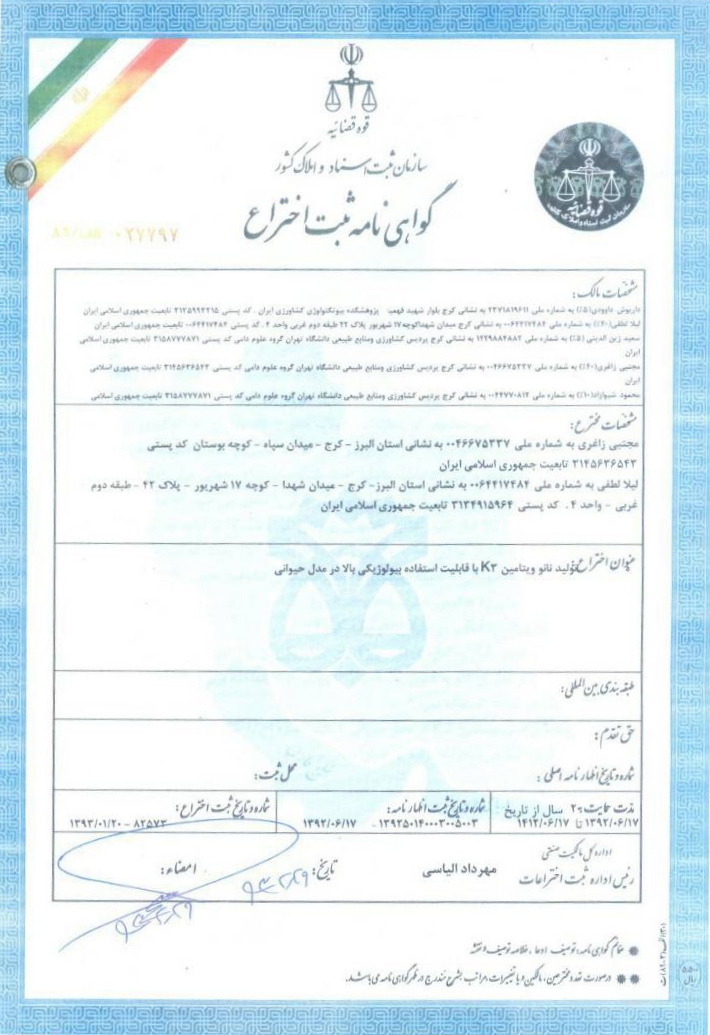 قوه قضائیه
سازمان ثبت اسناد و املاک کشور
گواهی نامه ثبت اختراع
قوه قضائیه
سازمان ثبت اسناد و املاک کشور
۰۲۷۷۹۷
مشخصات مالک:
داریوش داوودی(۵٪) به شماره ملی ۲۲۷۱۸۱۹۶۱۱ به نشانی کرج بلوار شهید فهمیده پژوهشکده بیوتکنولوژی کشاورزی ایران . کد پستی ۳۱۳۵۹۹۳۳۱۵ تابعیت جمهوری اسلامی ایران
لیلا لطفی(۴۰٪) به شماره ملی ۰۰۶۴۴۱۷۴۸۴ به نشانی کرج میدان شهداکوچه ۱۷ شهریور پلاک ۴۲ طبقه دوم غربی واحد ۴ . کد پستی ۰۰۶۴۴۱۷۴۸۴ تابعیت جمهوری اسلامی ایران
سعید زین الدینی (۵٪) به شماره ملی ۱۲۲۹۸۸۴۸۸۲ به نشانی کرج پردیس کشاورزی ومنابع طبیعی دانشگاه تهران گروه علوم دامی کد پستی ۳۱۵۸۷۷۷۸۷۱ تابعیت جمهوری اسلامی
ایران
مجتبی زاغری(۴۰٪) به شماره ملی ۰۰۴۶۶۷۵۳۳۷ به نشانی کرج پردیس کشاورزی ومنابع طبیعی دانشگاه تهران گروه علوم دامی کد پستی ۳۱۴۵۶۳۶۵۴۳ تابعیت جمهوری اسلامی
ایران
محمود شیوازاد(۱۰٪) به شماره ملی ۰۰۴۴۷۷۰۸۱۲ به نشانی کرج پردیس کشاورزی ومنابع طبیعی دانشگاه تهران گروه علوم دامی کد پستی ۳۱۵۸۷۷۷۸۷۱ تابعیت جمهوری اسلامی
مشخصات مخترع:
مجتبی زاغری به شماره ملی ۰۰۴۶۶۷۵۳۳۷ به نشانی استان البرز - کرج - میدان سپاه - کوچه بوستان کد پستی
۳۱۴۵۶۳۶۵۴۳ تابعیت جمهوری اسلامی ایران
لیلا لطفی به شماره ملی ۰۰۶۴۴۱۷۴۸۴ به نشانی استان البرز - کرج - میدان شهدا - کوچه ۱۷ شهریور - پلاک ۴۲ - طبقه دوم
غربی - واحد ۴ . کد پستی ۳۱۳۴۹۱۵۹۶۴ تابعیت جمهوری اسلامی ایران
عنوان اختراع: تولید نانو ویتامین K۳ با قابلیت استفاده بیولوژیکی بالا در مدل حیوانی
طبقه بندی بین المللی:
حق تقدم:
شماره و تاریخ اظهار نامه اصلی : محل ثبت:
مدت حمایت: ۲۰ سال از تاریخ
۱۳۹۲/۰۶/۱۷ تا ۱۴۱۲/۰۶/۱۷
شماره و تاریخ ثبت اظهار نامه:
۱۳۹۲۵۰۱۴۰۰۰۳۰۰۵۰۰۳ - ۱۳۹۲/۰۶/۱۷
شماره و تاریخ ثبت اختراع:
۸۲۵۷۳ - ۱۳۹۳/۰۱/۲۰
اداره کل مالکیت صنعتی
رئیس اداره ثبت اختراعات
مهرداد الیاسی
تاریخ:
امضاء:
ضمائم گواهی نامه: توصیف، ادعا، خلاصه توصیف و نقشه
در صورت تعدد مخترعین، مالکین و یا تغییرات، مراتب بشرح مندرج در ظهر گواهی نامه می باشد.